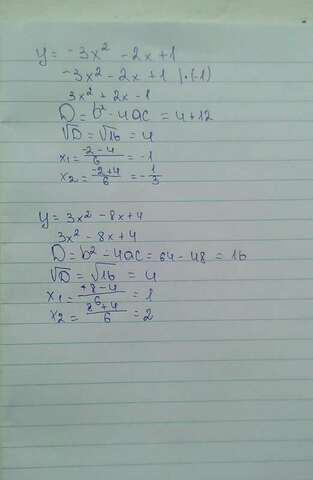 y = -3x² - 2x + 1
-3x² - 2x + 1 |·(-1)
3x² + 2x - 1
D = b² - 4ac = 4 + 12
√D = √16 = 4
x₁ = (-2 - 4)/6 = -1
x₂ = (-2 + 4)/6 = -1/3
y = 3x² - 8x + 4
3x² - 8x + 4
D = b² - 4ac = 64 - 48 = 16
√D = √16 = 4
x₁ = (+8 - 4)/6 = 1
x₂ = (8 + 4)/6 = 2